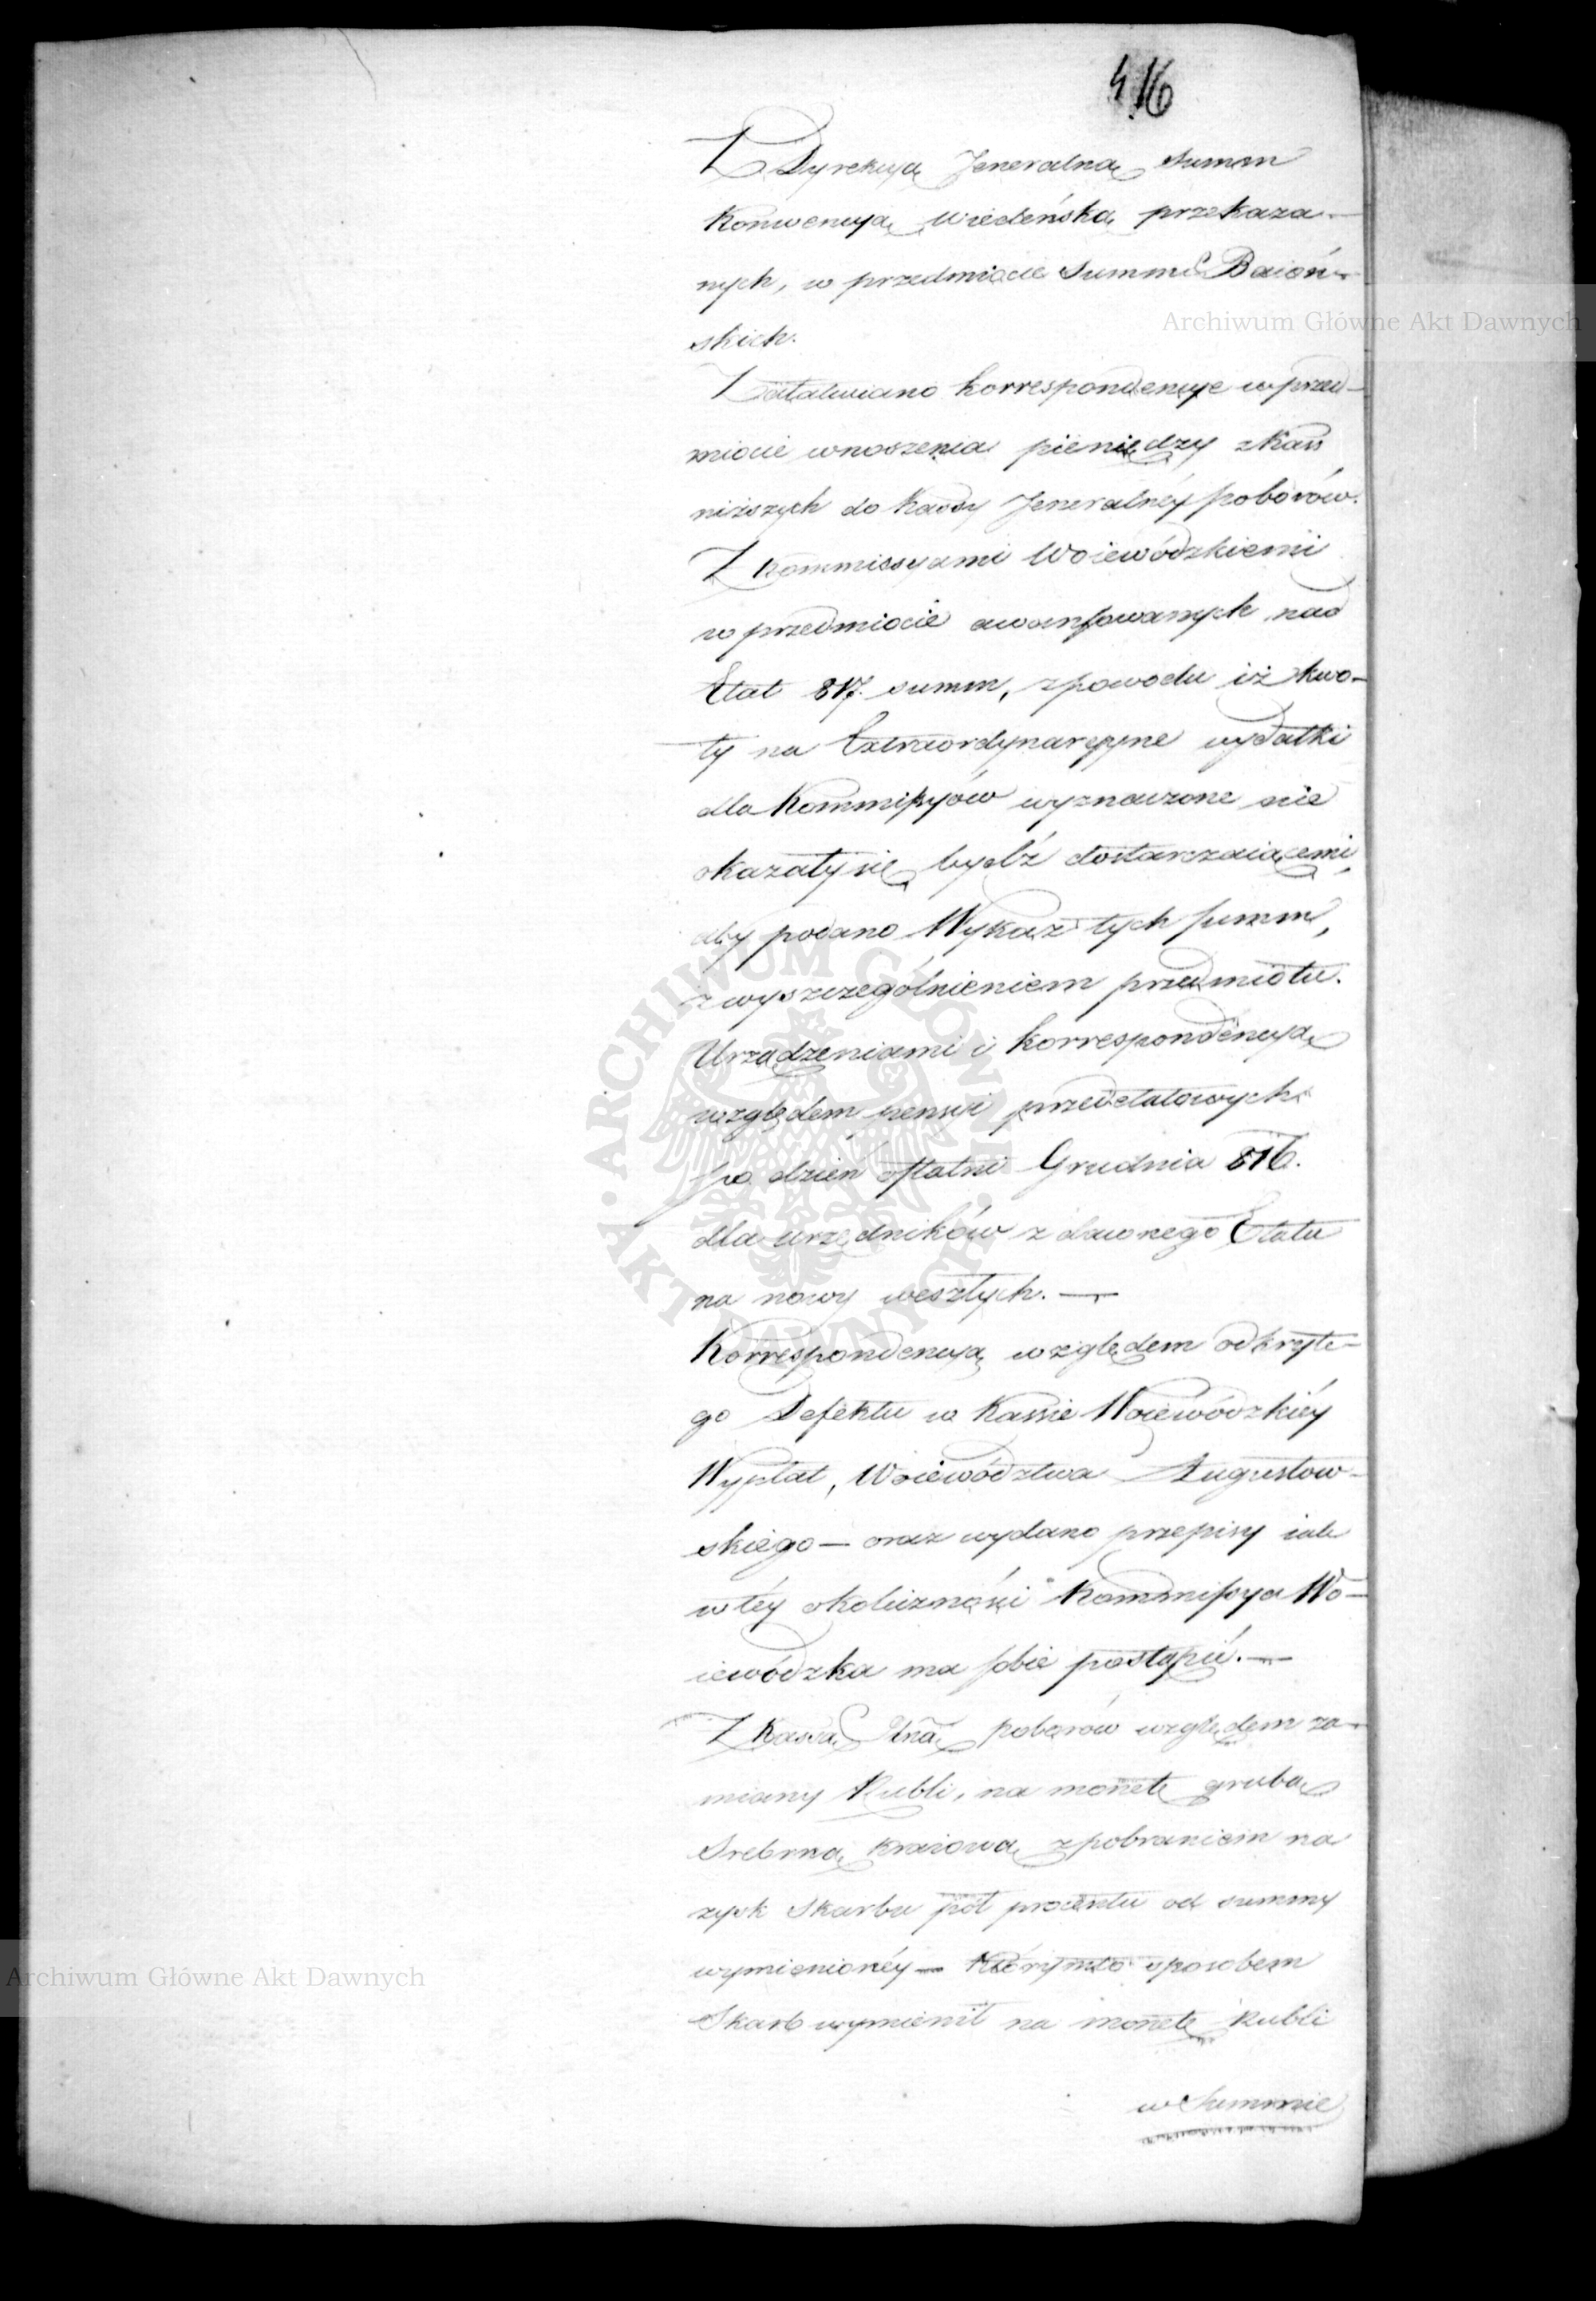 416
Z Dyrekcyą Jeneralną summ
Konwencyą Wiedeńską przekaza-
nych, w przedmiocie Summ Baioń-
skich.
Załatwiano korrespondencye w przed-
miocie wnoszenia pieniędzy z Kass
niższych do Kassy Jeneralnéy poborów.
Z Kommissyami Woiewódzkiemi
w przedmiocie awansowanych nad
Etat 817. summ, z powodu iż kwo-
ty na Extraordynaryjne wydatki
dla Kommissyów wyznaczone nie
okazały się bydź dostarczaiącemi,
aby podano Wykaz tych summ,
z wyszczególnieniem przedmiotu.
Urządzeniami i korrespondencyą
względem pensyi przedetatowych
po dzień ostatni Grudnia 816.
dla urzędników z dawnego Etatu
na nowy weszłych. —
Korrespondencyą względem odkryte-
go Defektu w Kassie Woiewódzkiéy
Wypłat, Woiewództwa Augustow-
skiego — oraz wydano przepisy iak
w téy okoliczności Kommissya Wo-
iewódzka ma sobie postąpić. —
Z Kassą Jlną poborów względem za-
miany Rubli, na monetę grubą
Srebrną kraiową z pobraniem na
zysk Skarbu pół procentu od summy
wymienionéy — którymto sposobem
Skarb wymienił na monetę Rubli
w Summie
Archiwum Główne Akt Dawnych
Archiwum Główne Akt Dawnych
ARCHIWUM GŁÓWNE AKT DAWNYCH